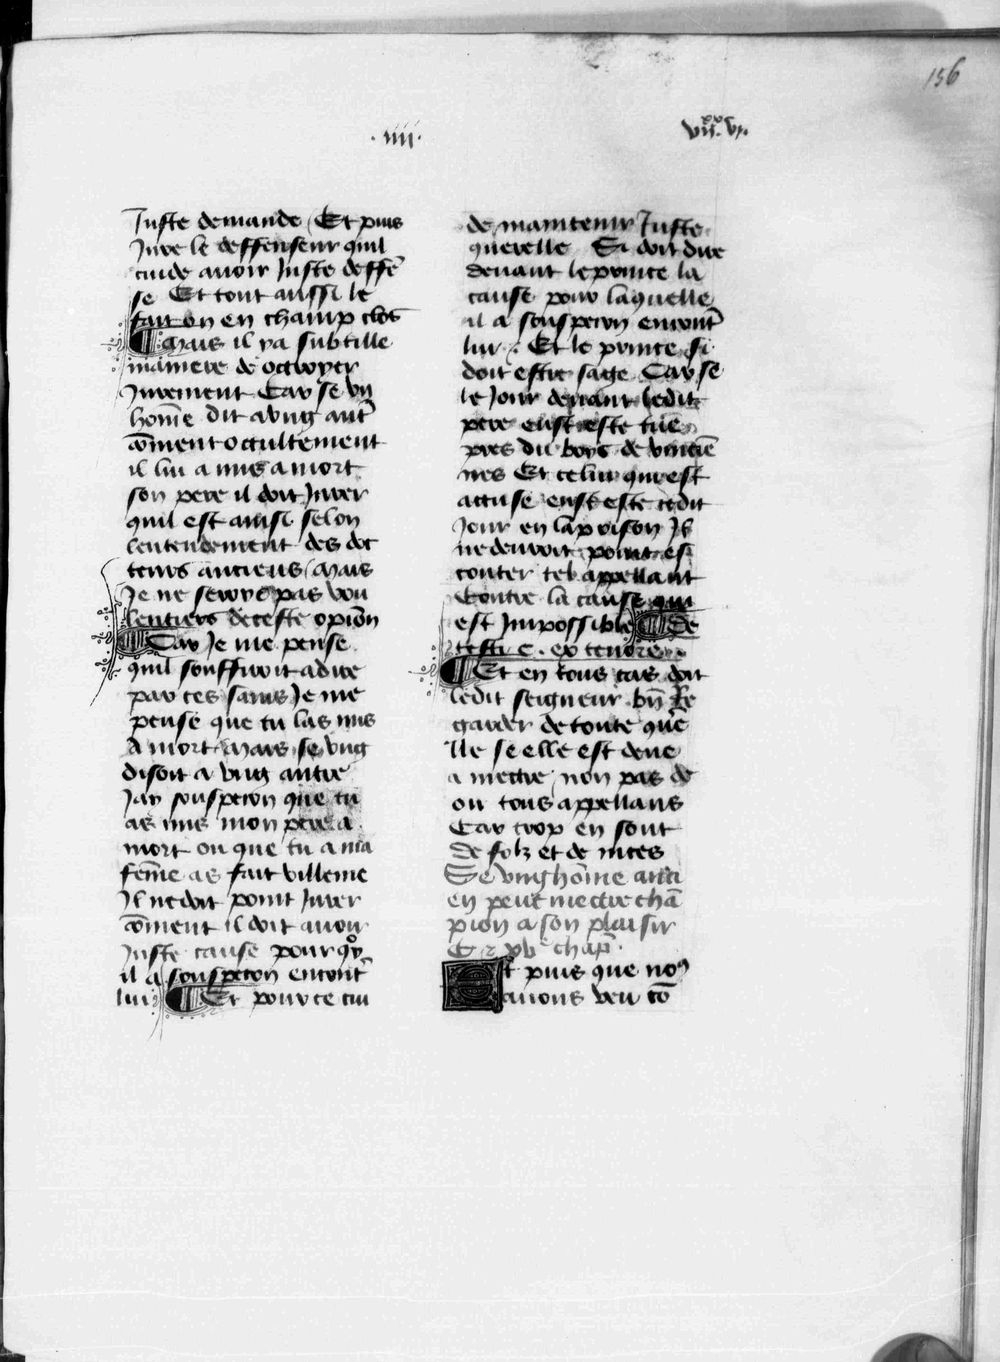 156
.iiii.
vii.xx vi.
Juste demande / Et puis
Jure le deffenseur quil
cuide avoir Juste deffē
se Et tout aussi le
fait on en champ clos
¶ Mais il ya subtille
maniere de octroyer
Jurement Car se vn
hom̄e dit a vng aut̄
cōment occultement
il lui a mis a mort
son pere il doit Jurer
quil est ainsi selon
lentendement des doc
teurs anciens / Mais
Je ne seroye pas vou
lentiers de ceste opiōn
¶ Car Je me pense
quil souffiroit a dire
par ces sains Je me
pense que tu las mis
a mort Mais se vng
disoit a vng autre
Jay souspecon que tu
as mis mon pere a
mort ou que tu a ma
fem̄e as fait villenie
Il ne doit point Jurer
cōment il doit avoir
Juste cause pour quoy
il a souspecon encont̄
lui ¶ Et pour ce cui
de maintenir Juste
querelle Si doit dire
devant le prince la
cause pour laquelle
il a souspecon encont̄
lui : Et le prince si
doit estre sage Car se
le Jour devant ledit
pere eust este tue
pres du boys de vincē
nes Et celui qui est
accuse eust este ledit
Jour en la prison Il
ne devroit point es
couter tel appellant
Contre la cause qui
est Impossible ¶ De
testi c. ex tenore
¶ Et en tous cas doit
ledit seigneur bn̄ Re
garder de toute quē
lle se elle est deue
a mectre / non pas de
ou tous appellans
Car trop en sont
de folz et de nices
Se vng hom̄e anci
en peut mectre chā
pion a son plaisir
Et puis que nous
avons veu cō